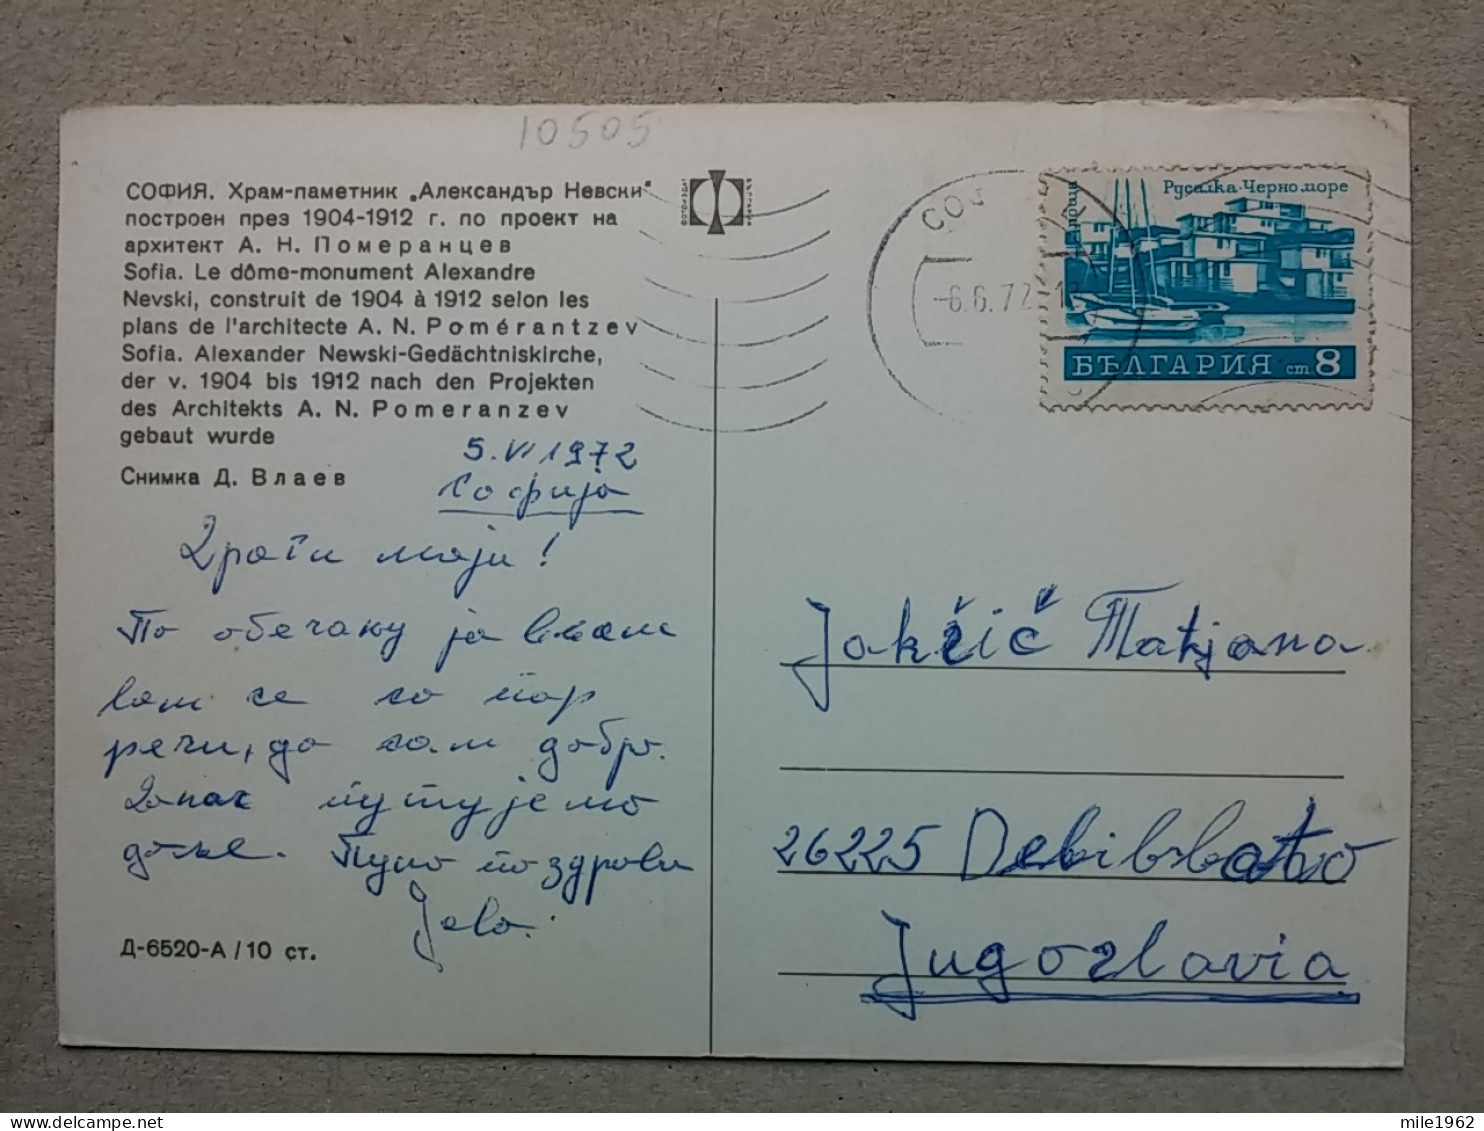 10505
СОФИЯ. Храм-паметник „Александър Невски“
построен през 1904-1912 г. по проект на
архитект А. Н. Померанцев
Sofia. Le dôme-monument Alexandre
Nevski, construit de 1904 à 1912 selon les
plans de l'architecte A. N. Pomérantzev
Sofia. Alexander Newski-Gedächtniskirche,
der v. 1904 bis 1912 nach den Projekten
des Architekts A. N. Pomeranzev
gebaut wurde
Снимка Д. Влаев
5. VI 1972
Софија
Драги моји!
По обећању ја вам
вам се са пар
речи, да сам добро.
Данас путујемо
даље. Пуно поздрава
Д-6520-А / 10 ст.
поща
Русалка-Черно море
БЪЛГАРИЯ ст. 8
-6.6.72
Jakšić Tatjana
26225 Debilbbato
Jugoslavia
mile1962